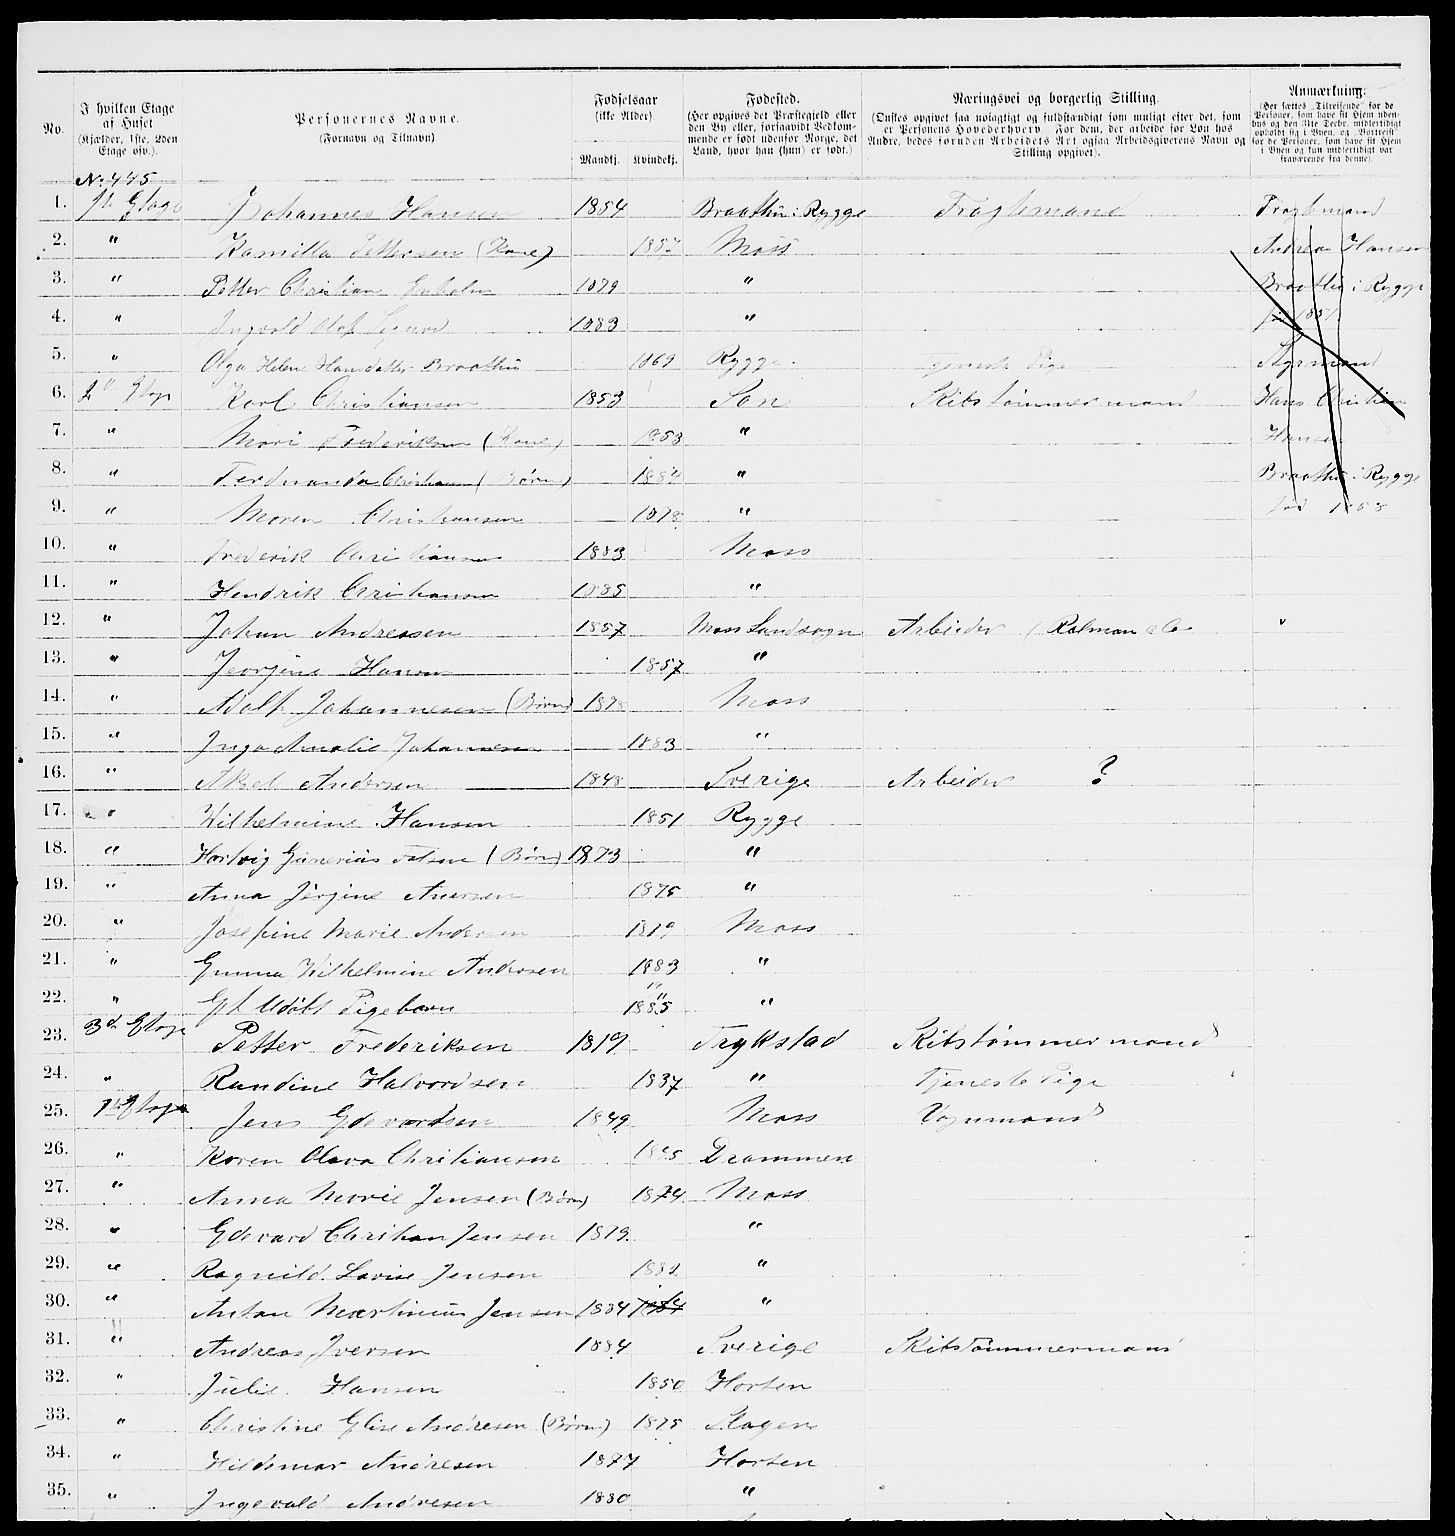 No.
I hvilken Etage af Huset (Kjælder, 1ste, 2den Etage osv.).
Personernes Navne. (Fornavn og Tilnavn)
Fødselsaar (ikke Alder) Mandkj. Kvindekj.
Fødested. (Her opgives det Præstegjeld eller den By eller, forsaavidt Vedkommende er født udenfor Norge, det Land, hvor han (hun) er født.)
Næringsvei og borgerlig Stilling. (Ønskes opgivet saa nøiagtigt og fuldstændigt som muligt efter det, som er Personens Hovederhverv. For dem, der arbeide for Løn hos Andre, bedes foruden Arbeidets Art ogsaa Arbeidsgiverens Navn og Stilling opgivet).
Anmærkning. (Her sættes „Tilreisende" for de Personer, som have sit Hjem udenbys og den 31te Decbr. midlertidigt opholdt sig i Byen, og „Bortreist" for de Personer, som have sit Hjem i Byen og kun midlertidigt var fraværende fra denne).
No. 445
1. 1ste Etage Johannes Hansen 1854 Braathu i Rygge Fragtemand Fragtemand
2. " Kamilla Pettersen (Kone) 1857 Moss Andreas Hansen
3. " Petter Christian 1879 " Braathu i Rygge
4. " Ingvald Olaf 1883 " 1851
5. " Olga Helene Hansdatter Braathu 1869 Rygge Tjeneste Pige Styrmand
6. 2d Etage Karl Christiansen 1853 Son Skibstømmermand Hans Christian
7. " Mari Frederiksen (Kone) 1853 " Hansen
8. " Ferdinanda Christiansen (Børn) " Braathu i Rygge
9. " Maren Christiansen 1878 " 1855
10. " Frederik Christiansen 1883 Moss
11. " Hendrik Christiansen 1885 "
12. " Johan Andreasen 1857 Moss Landsogn Arbeider
13. " Jeorgine Hansen 1857 "
14. " Adolf Johannesen (Børn) 1878 Moss
15. " Inga Amalie Johannesen 1883 "
16. " Aksel Andersen 1848 Sverige Arbeider ?
17. " Wilhelmine Hansen 1851 Rygge
18. " Hartvig (Børn) 1873 "
19. " Anna Jørgine 1875 "
20. " Josefine Marie Andersen 1879 Moss
21. " Emma Wilhelmine Andersen 1883 "
22. " Et Udøbt Pigebarn 1885 "
23. 3d Etage Petter Frederiksen 1819 Trykstad Skibstømmermand
24. " Randine Halvordsen 1837 " Tjeneste Pige
25. 1ste Etage Jens Edevardsen 1849 Moss Vognmand
26. " Karen Olava Christiansen 1845 Drammen
27. " Anna Marie Jensen (Børn) 1874 Moss
28. " Edevard Christian Jensen 1879 "
29. " Ragnild Lovise Jensen "
30. " Anton Martinius Jensen 1884 1884 "
31. " Andreas Iversen Sverige Skibstømmermand
32. " Julie Hansen 1850 Horten
33. " Christine Elise Andresen (Børn) 1875 Slagen
34. " Hildemar Andresen 1877 Horten
35. " Ingevald Andresen 1880 "